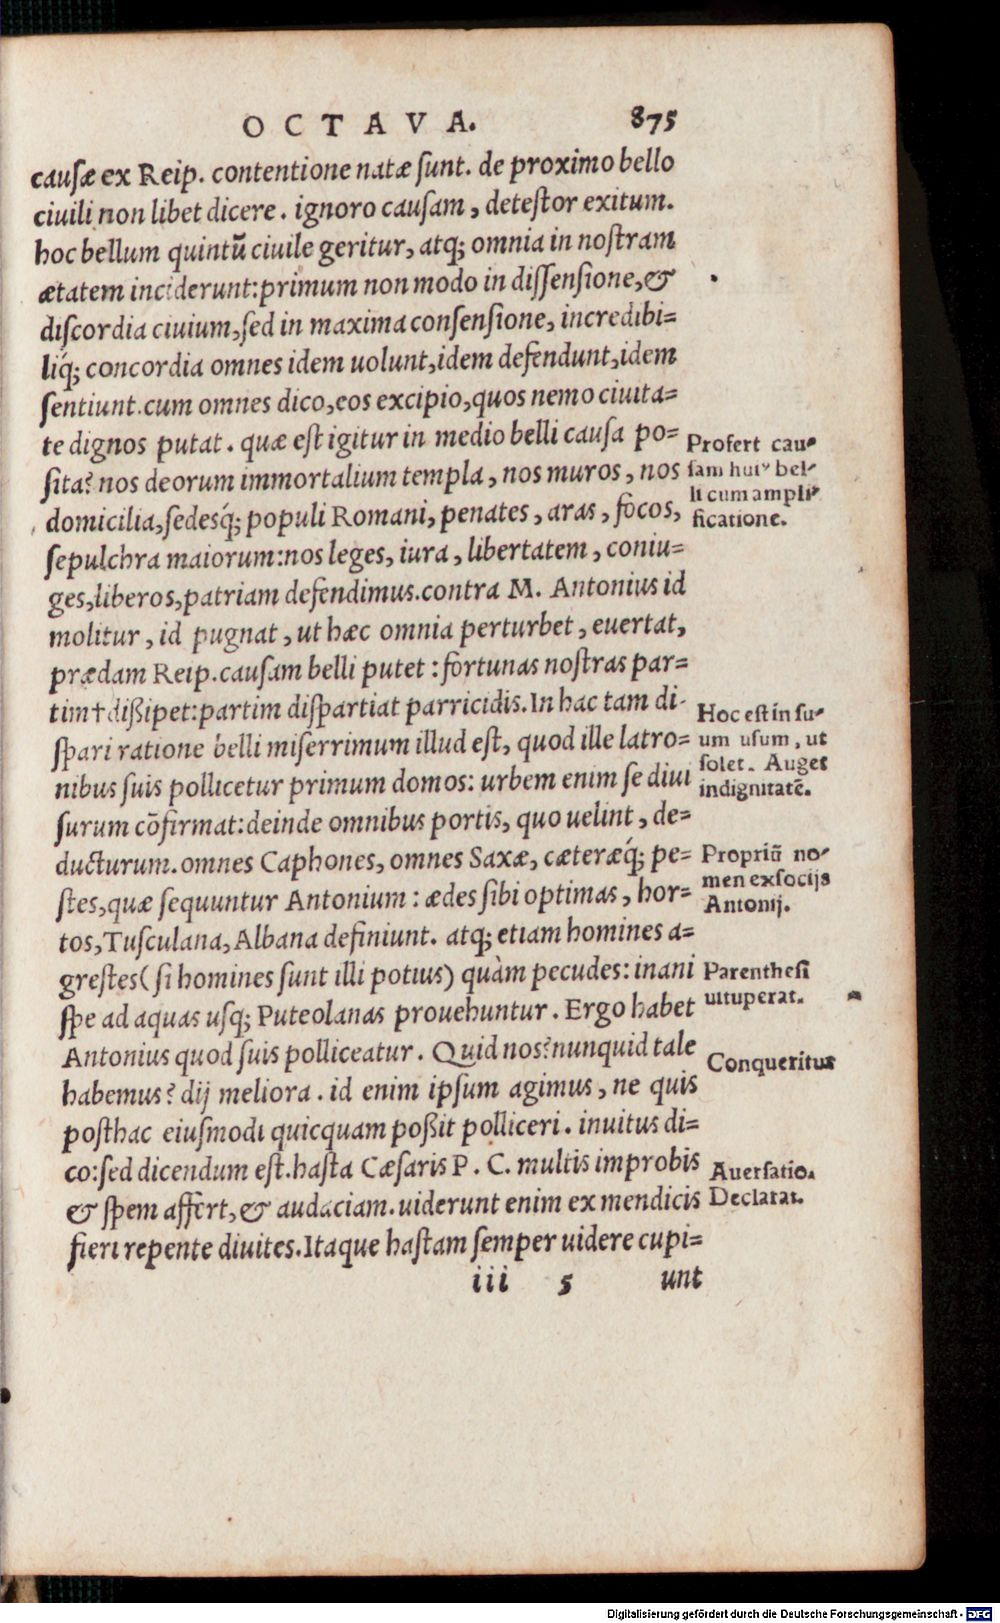 OCTAVA. 875
cauſæ ex Reip. contentione natæ ſunt. de proximo bello
ciuili non libet dicere. ignoro cauſam, deteſtor exitum.
hoc bellum quintũ ciuile geritur, atq; omnia in noſtram
ætatem inciderunt: primum non modo in diſſenſione, &
diſcordia ciuium, ſed in maxima conſenſione, incredibi=
liq́; concordia omnes idem uolunt, idem defendunt, idem
ſentiunt. cum omnes dico, eos excipio, quos nemo ciuita=
te dignos putat. quæ eſt igitur in medio belli cauſa po=
ſita? nos deorum immortalium templa, nos muros, nos
domicilia, ſedesq́; populi Romani, penates, aras, focos,
ſepulchra maiorum: nos leges, iura, libertatem, coniu=
ges, liberos, patriam defendimus. contra M. Antonius id
molitur, id pugnat, ut hæc omnia perturbet, euertat,
prædam Reip. cauſam belli putet: fortunas noſtras par=
tim † dißipet: partim diſpartiat parricidis. In hac tam di-
ſpari ratione belli miſerrimum illud eſt, quod ille latro=
nibus ſuis pollicetur primum domos: urbem enim ſe diui
ſurum cõfirmat: deinde omnibus portis, quo uelint, de=
ducturum. omnes Caphones, omnes Saxæ, cæteræq́; pe=
ſtes, quæ ſequuntur Antonium: ædes ſibi optimas, hor=
tos, Tuſculana, Albana definiunt. atq; etiam homines a=
greſtes (ſi homines ſunt illi potius) quàm pecudes: inani
ſpe ad aquas uſq; Puteolanas prouehuntur. Ergo habet
Antonius quod ſuis polliceatur. Quid nos? nunquid tale
habemus? dij meliora. id enim ipſum agimus, ne quis
poſthac eiuſmodi quicquam poßit polliceri. inuitus di=
co: ſed dicendum eſt. haſta Cæſaris P. C. multis improbis
& ſpem affert, & audaciam. uiderunt enim ex mendicis
fieri repente diuites. Itaque haſtam ſemper uidere cupi=
iii 5 unt
Profert cau-
ſam huiꝰ bel-
li cum ampli-
ficatione.
Hoc eſt in ſu-
um uſum, ut
ſolet. Auget
indignitatẽ.
Propriũ no-
men ex ſocijs
Antonij.
Parentheſi
uituperat.
Conqueritur
Auerſatio.
Declarat.
Digitalisierung gefördert durch die Deutsche Forschungsgemeinschaft - DFG